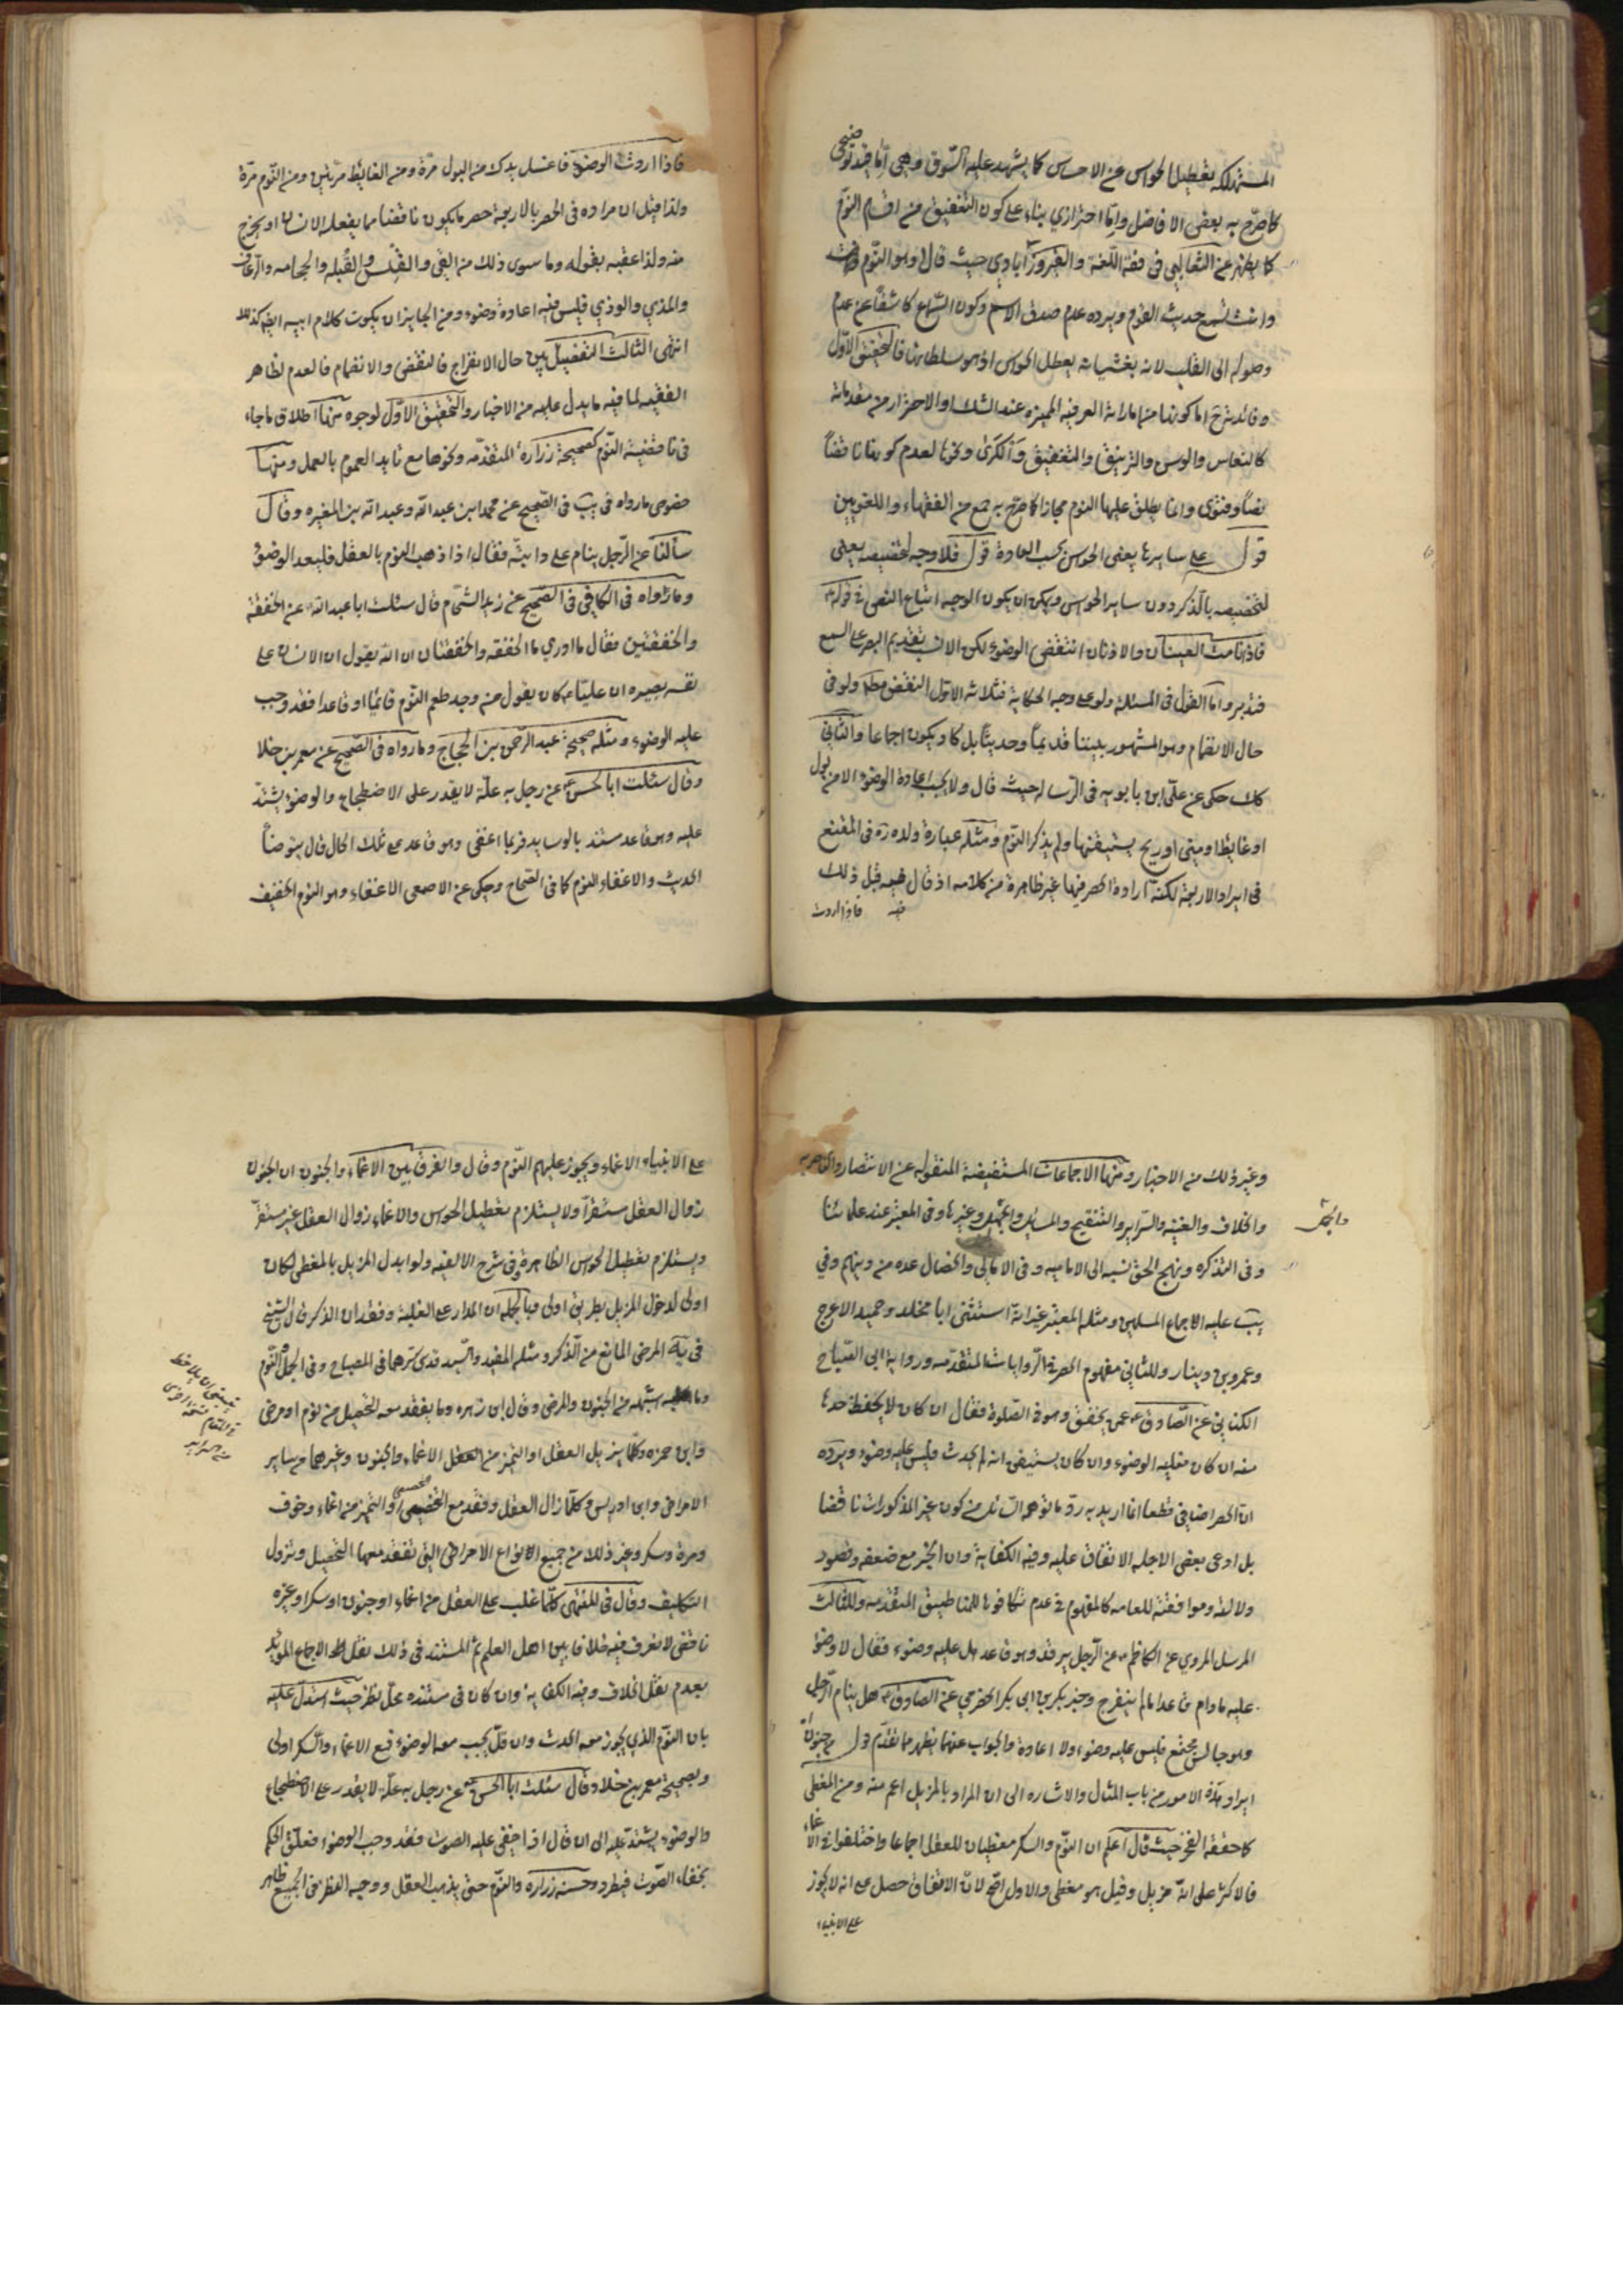 المستهلكه بتعطيل الحواس عن الاحساس كما يشهد عليه السّوق وهى امّا قيد توضيحى
كما صرّح به بعض الافاضل وامّا احترازي بناء على كون التخفيق من اقسام النوم
كما يظهر عن الثعالبى فى فقه اللّغة والفيروزآبادى حيث قال وهو النّوم
وانت تسمع حديث القوم ويرده عدم صدق الاسم وكون السّماع كاشفاً عن عدم
وصوله الى القلب لانه بغشيانه يعطل الحواس اذ هو سلطانها فالتحقيق الاوّل
وفائد شرح اما كونها من اماراته العرفيه المميزه عند الشك او الاحتراز من مقدماته
كالنعاس والوسن والترنيق والتغفيق والكرى ونحوها لعدم كونها ناقضاً
نصاً وفتوى وانما يطلق عليها النوم مجازا كما صرّح به جمع من الفقهاء واللغويين
قول على سايرها يعنى الحواس بحسب العادة قول فلا وجه لتخصيصه يعنى
لتخصيصه بالذكر دون ساير الحواس ويمكن ان يكون الوجه اتباع النص فى قوله
فاذا نامت العينان والاذنان انتقض الوضوء لكن الانسب تقديم البصر على السمع
فتدبر وامّا القول فى المسئله ولو على وجه الحكاية فثلاثه الاول النقض مطم ولو فى
حال الانضمام وهو المشهور بيننا قديماً وحديثاً بل كاد يكون اجماعا والثانى
حكى عن على ابن بابويه فى الرّساله حيث قال ولا يجب اعادة الوضوء الا من بول
او غايط او منى او ريح يستيقنها ولم يذكر النّوم ومثله عبارة ولده ره فى المقنع
فى ايراد الاربعة لكنه اراده الحصر فيها غير ظاهرة من كلامه اذ قال فيه قبل ذلك
فيه فاذا اردت
فاذا اردت الوضوء فاغسل يدك من البول مرّة ومن الغايط مرّتين ومن النّوم مرّة
ولذا قيل ان مراده فى الحصر بالاربعة حصر ما يكون ناقضا مما يفعله الانسان او يخرج
منه ولذا عقبه بقوله وما سوى ذلك من القئ والقلس والقُبله والحجامه والرّعاف
والمذي والوذي فليس فيه اعادة وضوء ومن الجايز ان يكون كلام ابيه ايض كذلك
انتهى الثالث التفصيل بين حال الانفراج فالنقض والانضمام فالعدم لظاهر
الفقيه لما فيه ما يدل عليه من الاخبار والتحقيق الاوّل لوجوه منها اطلاق ما جاء
فى ناقضية النّوم كصحيحة زرارة المتقدّمه ونحوها مع تايد العموم بالعمل ومنها
خصوص ما رواه فى يب فى الصّحيح عن محمد ابن عبد الله وعبد الله بن المغيره وقال
سألنا عن الرّجل ينام على دابّته فقال اذا ذهب النوم بالعقل فليعد الوضوء
وما رواه فى الكافى فى الصّحيح عن زيد الشحّام قال سئلت ابا عبد الله عن الخفقة
والخفقتين فقال ما ادري ما الخفقه والخفقتان ان الله يقول بل الانسان على
نفسه بصيره ان عليّاً كان يقول من وجد طعم النّوم قائماً او قاعدا فقد وجب
عليه الوضوء ومثله صحيحة عبد الرّحمن بن الحجّاج وما رواه فى الصّحيح عن معمر بن خلا
وقال سئلت ابا الحسن عن رجل به علّة لا يقدر على الاضطجاع والوضوء يشتدّ
عليه وهو قاعد مستند بالوسايد فربما اغفى وهو قاعد على تلك الحال قال يتوضأ
الحديث والاغفاء النوم كما فى الصّحاح وحكى عن الاصمعى الاغفاء وهو النوم الخفيف
وغير ذلك من الاخبار ومنها الاجماعات المستفيضة المنقوله عن الانتصار والناصريه
والخلاف والغنيه والسّراير والتنقيح والمسايل وغيرها وفى المعتبر عند علمائنا
وفى التذكره ونهج الحق نسبه الى الاماميه وفى الامالى والخصال عده من دينهم وفي
يب عليه الاجماع المسلمين ومثله المعتبر غير انه استثنى ابا مخلد وحميد الاعرج
وعمرو بن دينار وللثانى مفهوم الحصر فى الرّوايات المتقدّمه ورواية ابى الصّباح
الكنانى عن الصّادق عمن يخفق وهو فى الصّلوة فقال ان كان لا يحفظ حدثا
منه ان كان فعليه الوضوء وان كان يستيقن انه لم يحدث فليس عليه وضوء ويرده
انّ الحصر اضافى قطعا انما اريد به ردّ ما توهمه من كون غير المذكورات ناقضا
بل ادعى بعض الاجله الاتفاق عليه وفيه الكفاية وان الخبر مع ضعفه وقصور
دلالته وموافقته للعامه كالمفهوم فى عدم تكافوئها للمناطيق المتقدّمه وللثالث
المرسل المروي عن الكاظم عن الرّجل يرقد وهو قاعد هل عليه وضوء فقال لا وضوء
عليه ما دام قاعدا ما لم ينفرج وخبر بكر بن ابى بكر الحضرمي عن الصادق هل ينام الرّجل
وهو جالس مجتمع فليس عليه وضوء ولا اعادة والجواب عنهما يظهر مما تقدّم قول من جنون
ايراد هذه الامور من باب المثال والاشاره الى ان المراد بالمزيل اعم منه ومن المغطى
كما حققه الفخر حيث قال اعلم ان النّوم والسكر مغطيان للعقل اجماعا واختلفوا فى الاغماء
فالاكثر على انه مزيل وقيل هو مغطى والاول اصح لانّ الاتفاق حصل على انه لا يجوز
على الانبياء
على الانبياء الاغماء ويجوز عليهم النّوم وقال والفرق بين الاغماء والجنون ان الجنون
زوال العقل مستقرّاً ولا يستلزم تعطيل الحواس والاغماء زوال العقل غير مستقرّ
ويستلزم تعطيل الحواس الظاهرة وفى شرح الالفيه ولو ابدل المزيل بالمغطى لكان
اولى لدخول المزيل بطريق اولى وبالجمله ان المدار على الغلبة وفقدان الذكر قال الشيخ
فى المرض المانع من الذّكر ومثله المفيد والسّيد قدس سرهما فى المصباح وفى الجمل النّوم
وما اشبهه من الجنون والمرض وقال ابن زهره وما يفقد معه التحصيل من نوم او مرض
وابن حمزه وكلّما يزيل العقل او التميز من الاغماء والجنون وغيرهما من ساير
الامراض وابن ادريس وكلّما زال العقل وفقد معه التحصيل والتميز من اغماء وخوف
ومرة وسكر وغير ذلك من جميع الانواع الامراض التى تفقد معها التحصيل وتزول
التكليف وقال فى المنتهى كلّما غلب على العقل من اغماء او جنون او سكر او غيره
ناقض لا نعرف فيه خلافا بين اهل العلم ثم المستند فى ذلك نقل الاجماع المؤيّد
بعدم نقل الخلاف وفيه الكفايه وان كان فى مستنده محلّ نظر حيث استدل عليه
بان النوم الذي يجوز معه الحدث وان قلّ يجب معه الوضوء فمع الاغماء والسكر اولى
وبصحيحة معمر بن خلاد وقال سئلت ابا الحسن عن رجل به علّة لا يقدر على الاضطجاع
والوضوء يشتدّ عليه الى ان قال اذا خفى عليه الصوت فقد وجب الوضوء فعلّق الحكم
بخفاء الصّوت فيطرد وحسنه زراره والنّوم حتى يذهب العقل ووجه النظر فى الجميع ظاهر